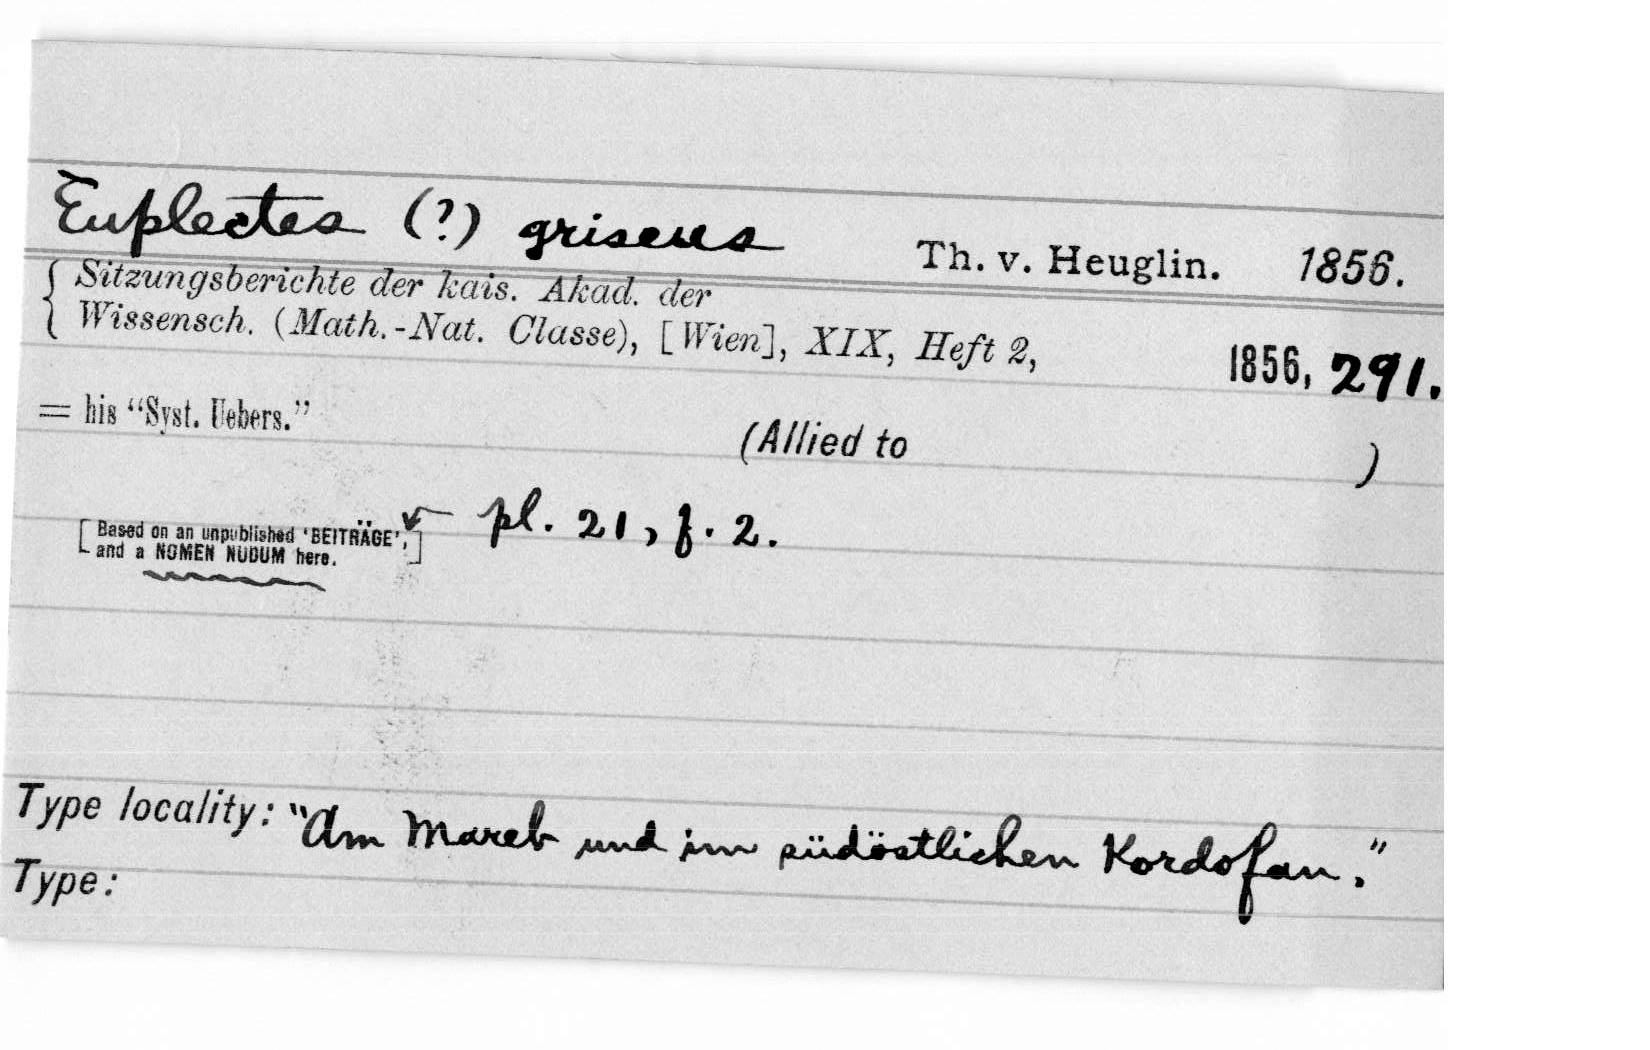 Euplectes (?) griseus Th. v. Heuglin. 1856.
Sitzungsberichte der kais. Akad. der
Wissensch. (Math.-Nat. Classe), [Wien], XIX, Heft 2, 1856, 291.
= his “Syst. Uebers.”
(Allied to )
[Based on an unpublished ‘BEITRÄGE’, pl. 21, f. 2.
and a NOMEN NUDUM here.]
Type locality: "Am Mareb und im südöstlichen Kordofan."
Type: